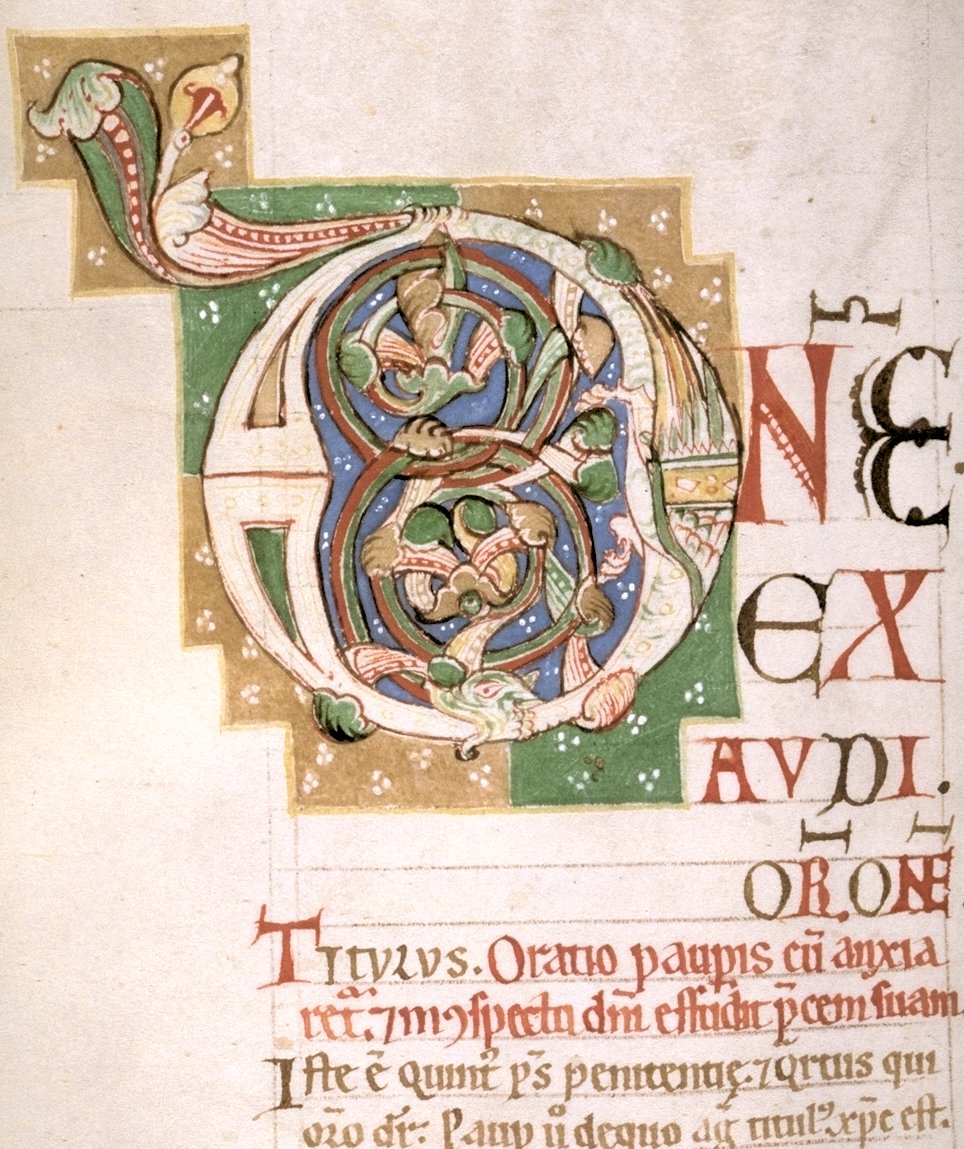 DNE
EX
AVDI.
OR.ONE
TITVLVS. Oratio paupis cū anxia
ret. ⁊ in ꝯspectu dm̄ effudit p̄cem suam
Iste ē quintꝰ p̄s penitentię. ⁊ Ortus qui
oro dr̄: Paup uº de quo ag̅ titulꝰ. xp̄c est.